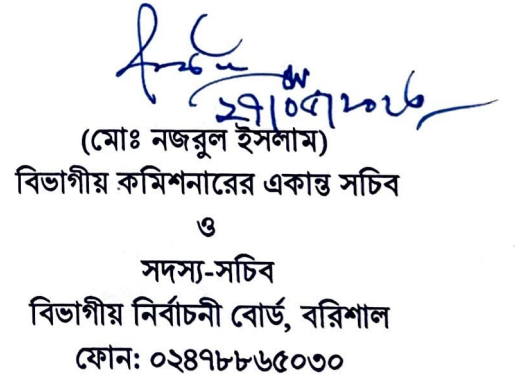 (মোঃ নজরুল ইসলাম)
বিভাগীয় কমিশনারের একান্ত সচিব
ও
সদস্য-সচিব
বিভাগীয় নির্বাচনী বোর্ড, বরিশাল
ফোন: ০২৪৭৮৮৬৫০৩০